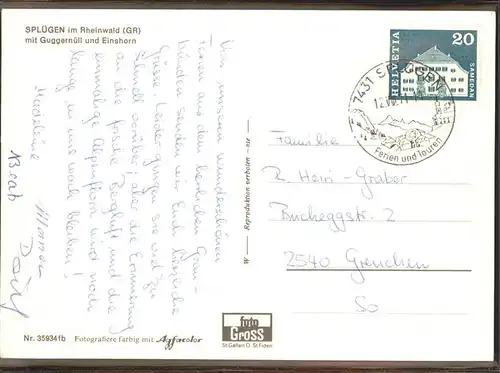 SPLÜGEN im Rheinwald (GR)
mit Guggernüll und Einshorn
Von unseren wunderschönen
Ferien aus dem herrlichen Grau-
bünden senden wir Euch herzliche
Grüsse. Leider gingen sie viel zu
schnell vorüber; aber die Erinnerung
an die frische Bergluft und die
einmalige Alpenflora wird noch
lange in uns wach bleiben!
Madeleine
Beat
HELVETIA
20
SAMEDAN
7431 SPLÜGEN
Ferien und Touren
Familie
R. Heiri-Graber
Bucheggstr. 2
2540 Grenchen
So
W — Reproduktion verboten
foto
GROSS
St.Gallen O St.Fiden
Nr. 359341b Fotografiere farbig mit Agfacolor